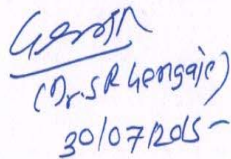 (Dr. S R Gengaje)
30/07/2015